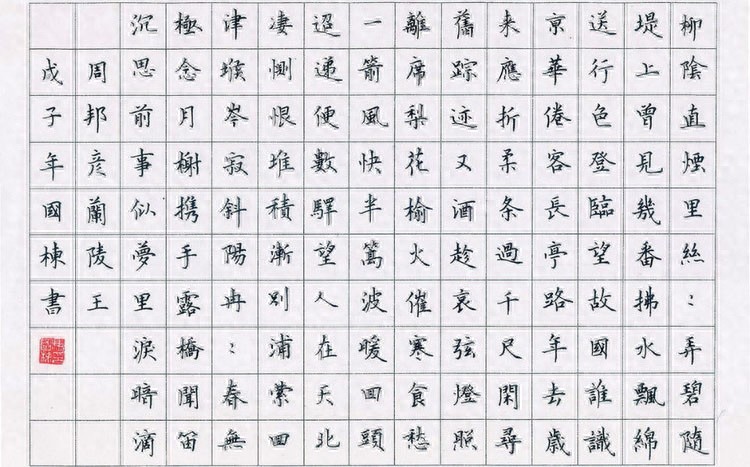 柳陰直煙里絲〻弄碧隨
堤上曾見幾番拂水飄綿
送行色登臨望故國誰識
京華倦客長亭路年去歲
来應折柔条過千尺閑尋
舊踪迹又酒趁哀弦燈照
離席梨花榆火催寒食愁
一箭風快半篙波暖回頭
迢递便數驛望人在天北
凄惻恨堆積漸别浦縈回
津堠岑寂斜陽冉〻春無
極念月榭携手露橋聞笛
沉思前事似夢里淚暗滴
周邦彦蘭陵王
戊子年國棟書